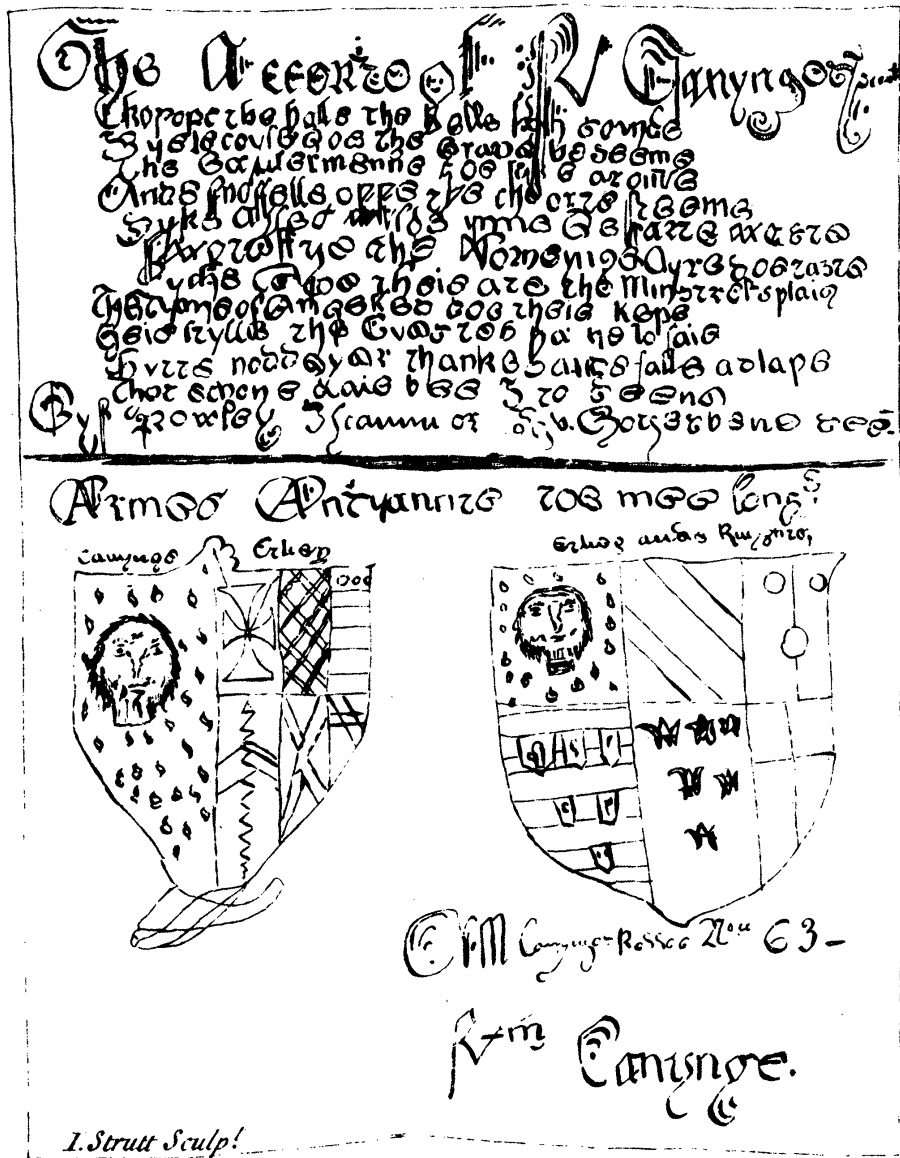 The Accounte of W Canynges Feast
Thorowe the halle the belle han sounde
Byelecoyle doe the Grave beseeme
The ealdermenne doe sytte arounde
Ande snoffelle oppe the cheorte steeme
Syke asses wylde ynne desarte waste
Swotelye the Morneynge Ayre doe taste
Syche coyne theie ate the Minstrels plaie
The dynne of angelles doe theie kepe
Heie stylle the Guestes ha ne to saie
Butte nodde yer thankes ande falle aslape
Thus echone daie bee I to deene
Gyf Rowley Iscamm or Tyb. Gorges be ne seene.
Armes Auntyannte toe mee long
Canynge Erley
Erlie andes Ruyants
Canynge Rosses Nou 63 -
Wm Canynge.
I. Strutt Sculp!